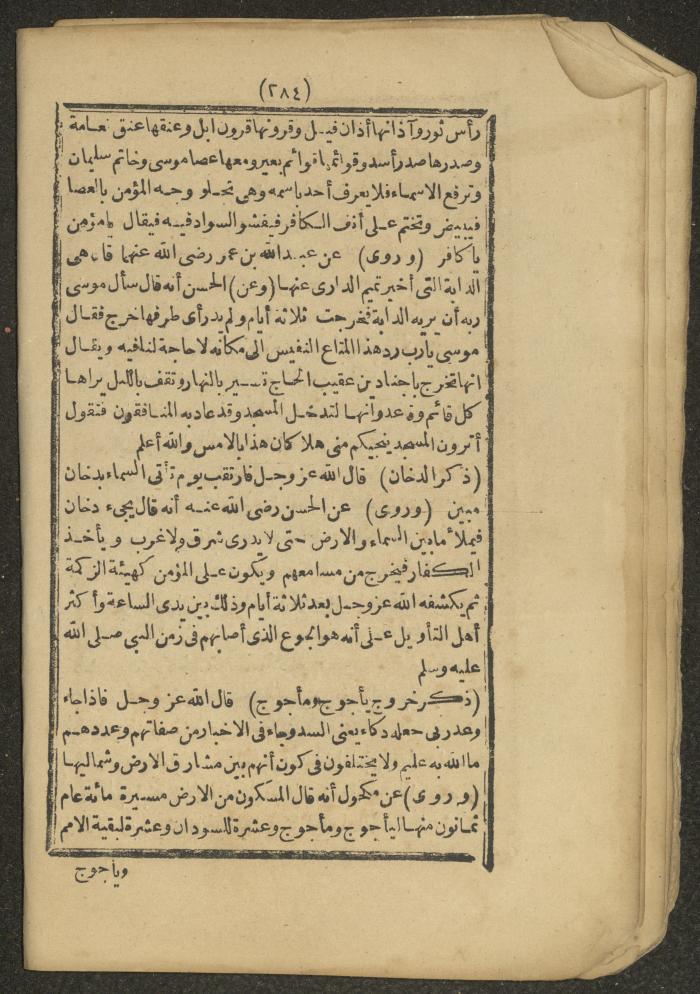 (٢٨٤)
رأس ثور وآذانها أذان فيل وقرونها قرون ابل وعنقها عنق نعامة
وصدرها صدر أسد وقوائمها قوائم بعير ومعها عصا موسى وخاتم سليمان
وترفع الاسماء فلا يعرف أحد باسمه وهى تجلو وجه المؤمن بالعصا
فيبيض وتختم على أنف الكافر فيفشو السواد فيه فيقال يا مؤمن
يا كافر (وروى) عن عبد الله بن عمر رضى الله عنهما قال هى
الدابة التى أخبر تميم الدارى عنها (وعن) الحسن أنه قال سأل موسى
ربه أن يريه الدابة فخرجت ثلاثة أيام ولم يدر أى طرفها خرج فقال
موسى يا رب رد هذا المتاع النفيس الى مكانه لا حاجة لنا فيه ويقال
انها تخرج باجناد بن عقيب الحاج تسير بالنهار وتقف بالليل يراها
كل قائم وقاعد وانها لتدخل المسجد وقد عاد به المنافقون فتقول
أترون المسجد ينجيكم منى هلا كان هذا بالامس والله أعلم
(ذكر الدخان) قال الله عز وجل فارتقب يوم تأتى السماء بدخان
مبين (وروى) عن الحسن رضى الله عنه أنه قال يجىء دخان
فيملأ ما بين السماء والارض حتى لا يدرى شرق ولا غرب ويأخذ
الكفار فيخرج من مسامعهم ويكون على المؤمن كهيئة الزكمة
ثم يكشفه الله عز وجل بعد ثلاثة أيام وذلك بين يدى الساعة وأكثر
أهل التأويل على أنه هو الجوع الذى أصابهم فى زمن النبى صلى الله
عليه وسلم
(ذكر خروج يأجوج ومأجوج) قال الله عز وجل فاذا جاء
وعد ربى جعله دكاء يعنى السد وجاء فى الاخبار من صفاتهم وعددهم
ما الله به عليم ولا يختلفون فى كون أنهم بين مشارق الارض وشماليها
(وروى) عن مكحول أنه قال المسكون من الارض مسيرة مائة عام
ثمانون منها ليأجوج ومأجوج وعشرة للسودان وعشرة لبقية الامم
ويأجوج